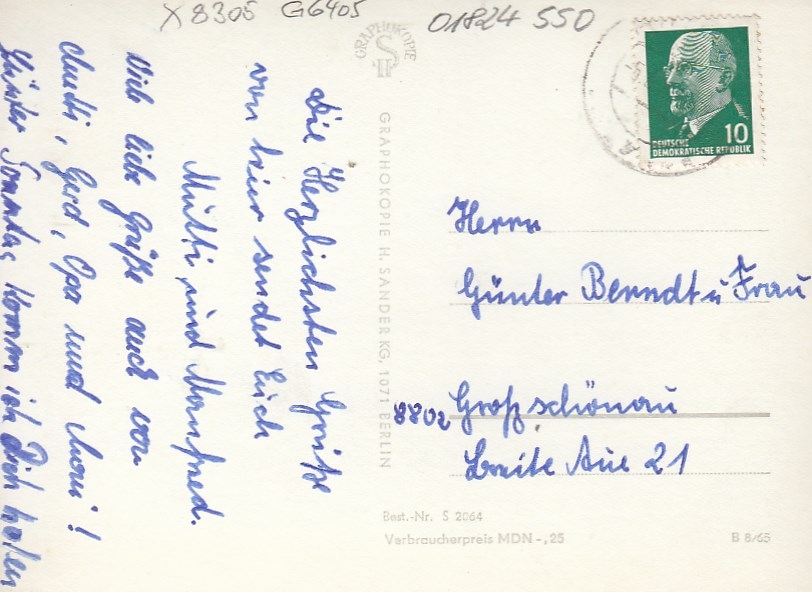 X 8305 G6405
01824 550
GRAPHOKOPIE
DEUTSCHE
DEMOKRATISCHE REPUBLIK
10
Die Herzlichsten Grüße
von hier sendet Euch
Mutti und Manfred.
Viele liebe Grüße auch von
Mutti, Gerd, Opa und
Günter Sonntag komm ich Dich holen
GRAPHOKOPIE H. SANDER KG, 1071 BERLIN
Herrn
Günter Berndt u Frau
8802 Großschönau
Breite Aue 21
Best.-Nr. S 2064
Verbraucherpreis MDN -,25
B 8/65